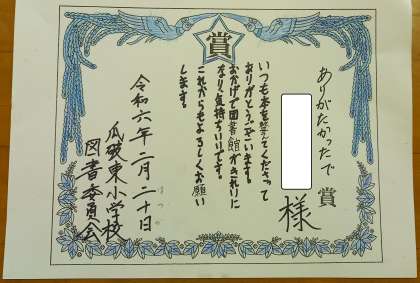 賞
ありがたかったで賞
様
いつも本を整えてくださって
ありがとうございます。
おかげで図書館がきれいに
なり、気持ちいいです。
これからもよろしくお願い
します。
令和六年二月二十日
瓜破東小学校
図書委員会